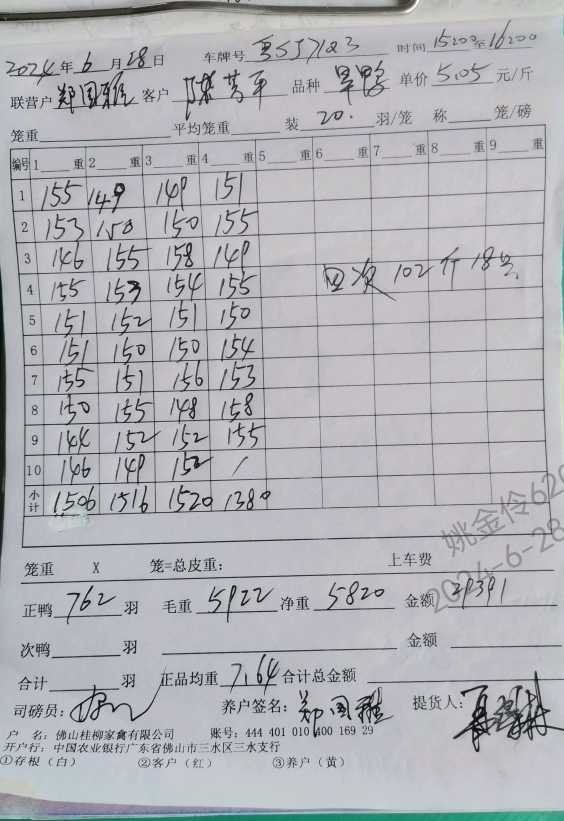 2024年6月28日 车牌号 粤SJ7123 时间 15200至16200
联营户 郑国雅 客户 陈芳平 品种 旱鸭 单价 5.05 元/斤
笼重 平均笼重 装 20. 羽/笼 称 笼/磅
编号 1 重 2 重 3 重 4 重 5 重 6 重 7 重 8 重 9 重
1 155 149 149 151
2 153 150 150 155
3 146 155 158 149
4 155 153 154 155 日次 102斤 18只
5 151 152 151 150
6 151 150 150 154
7 155 151 156 153
8 150 155 148 158
9 144 152 152 155
10 146 149 152 /
小计 1506 1516 1520 1380
笼重 X 笼=总皮重： 上车费
正鸭 762 羽 毛重 5922 净重 5820 金额 29391
次鸭 羽 金额
合计 羽 正品均重 7.64 合计总金额
司磅员： 养户签名：郑国雅 提货人：
户 名：佛山桂柳家禽有限公司 账号：444 401 010 400 169 29
开户行：中国农业银行广东省佛山市三水区三水支行
①存根（白） ②客户（红） ③养户（黄）
姚金伶629
2024-6-28